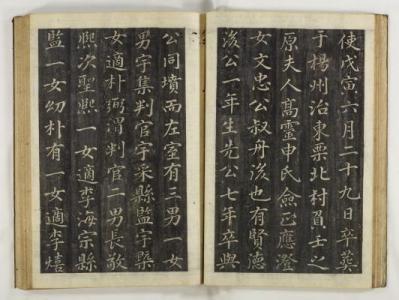 使戊寅六月二十九日卒葬
于楊州治東栗北村負壬之
原夫人高靈申氏僉正應澄
女文忠公叔舟後也有賢德
後公一年生先公七年卒與
公同墳而左室有三男一女
男宇集判官宇采縣監宇
女適朴弼渭判官二男長敬
熙次聖熙一女適李海宗縣
監一女幼朴有一女適李熺